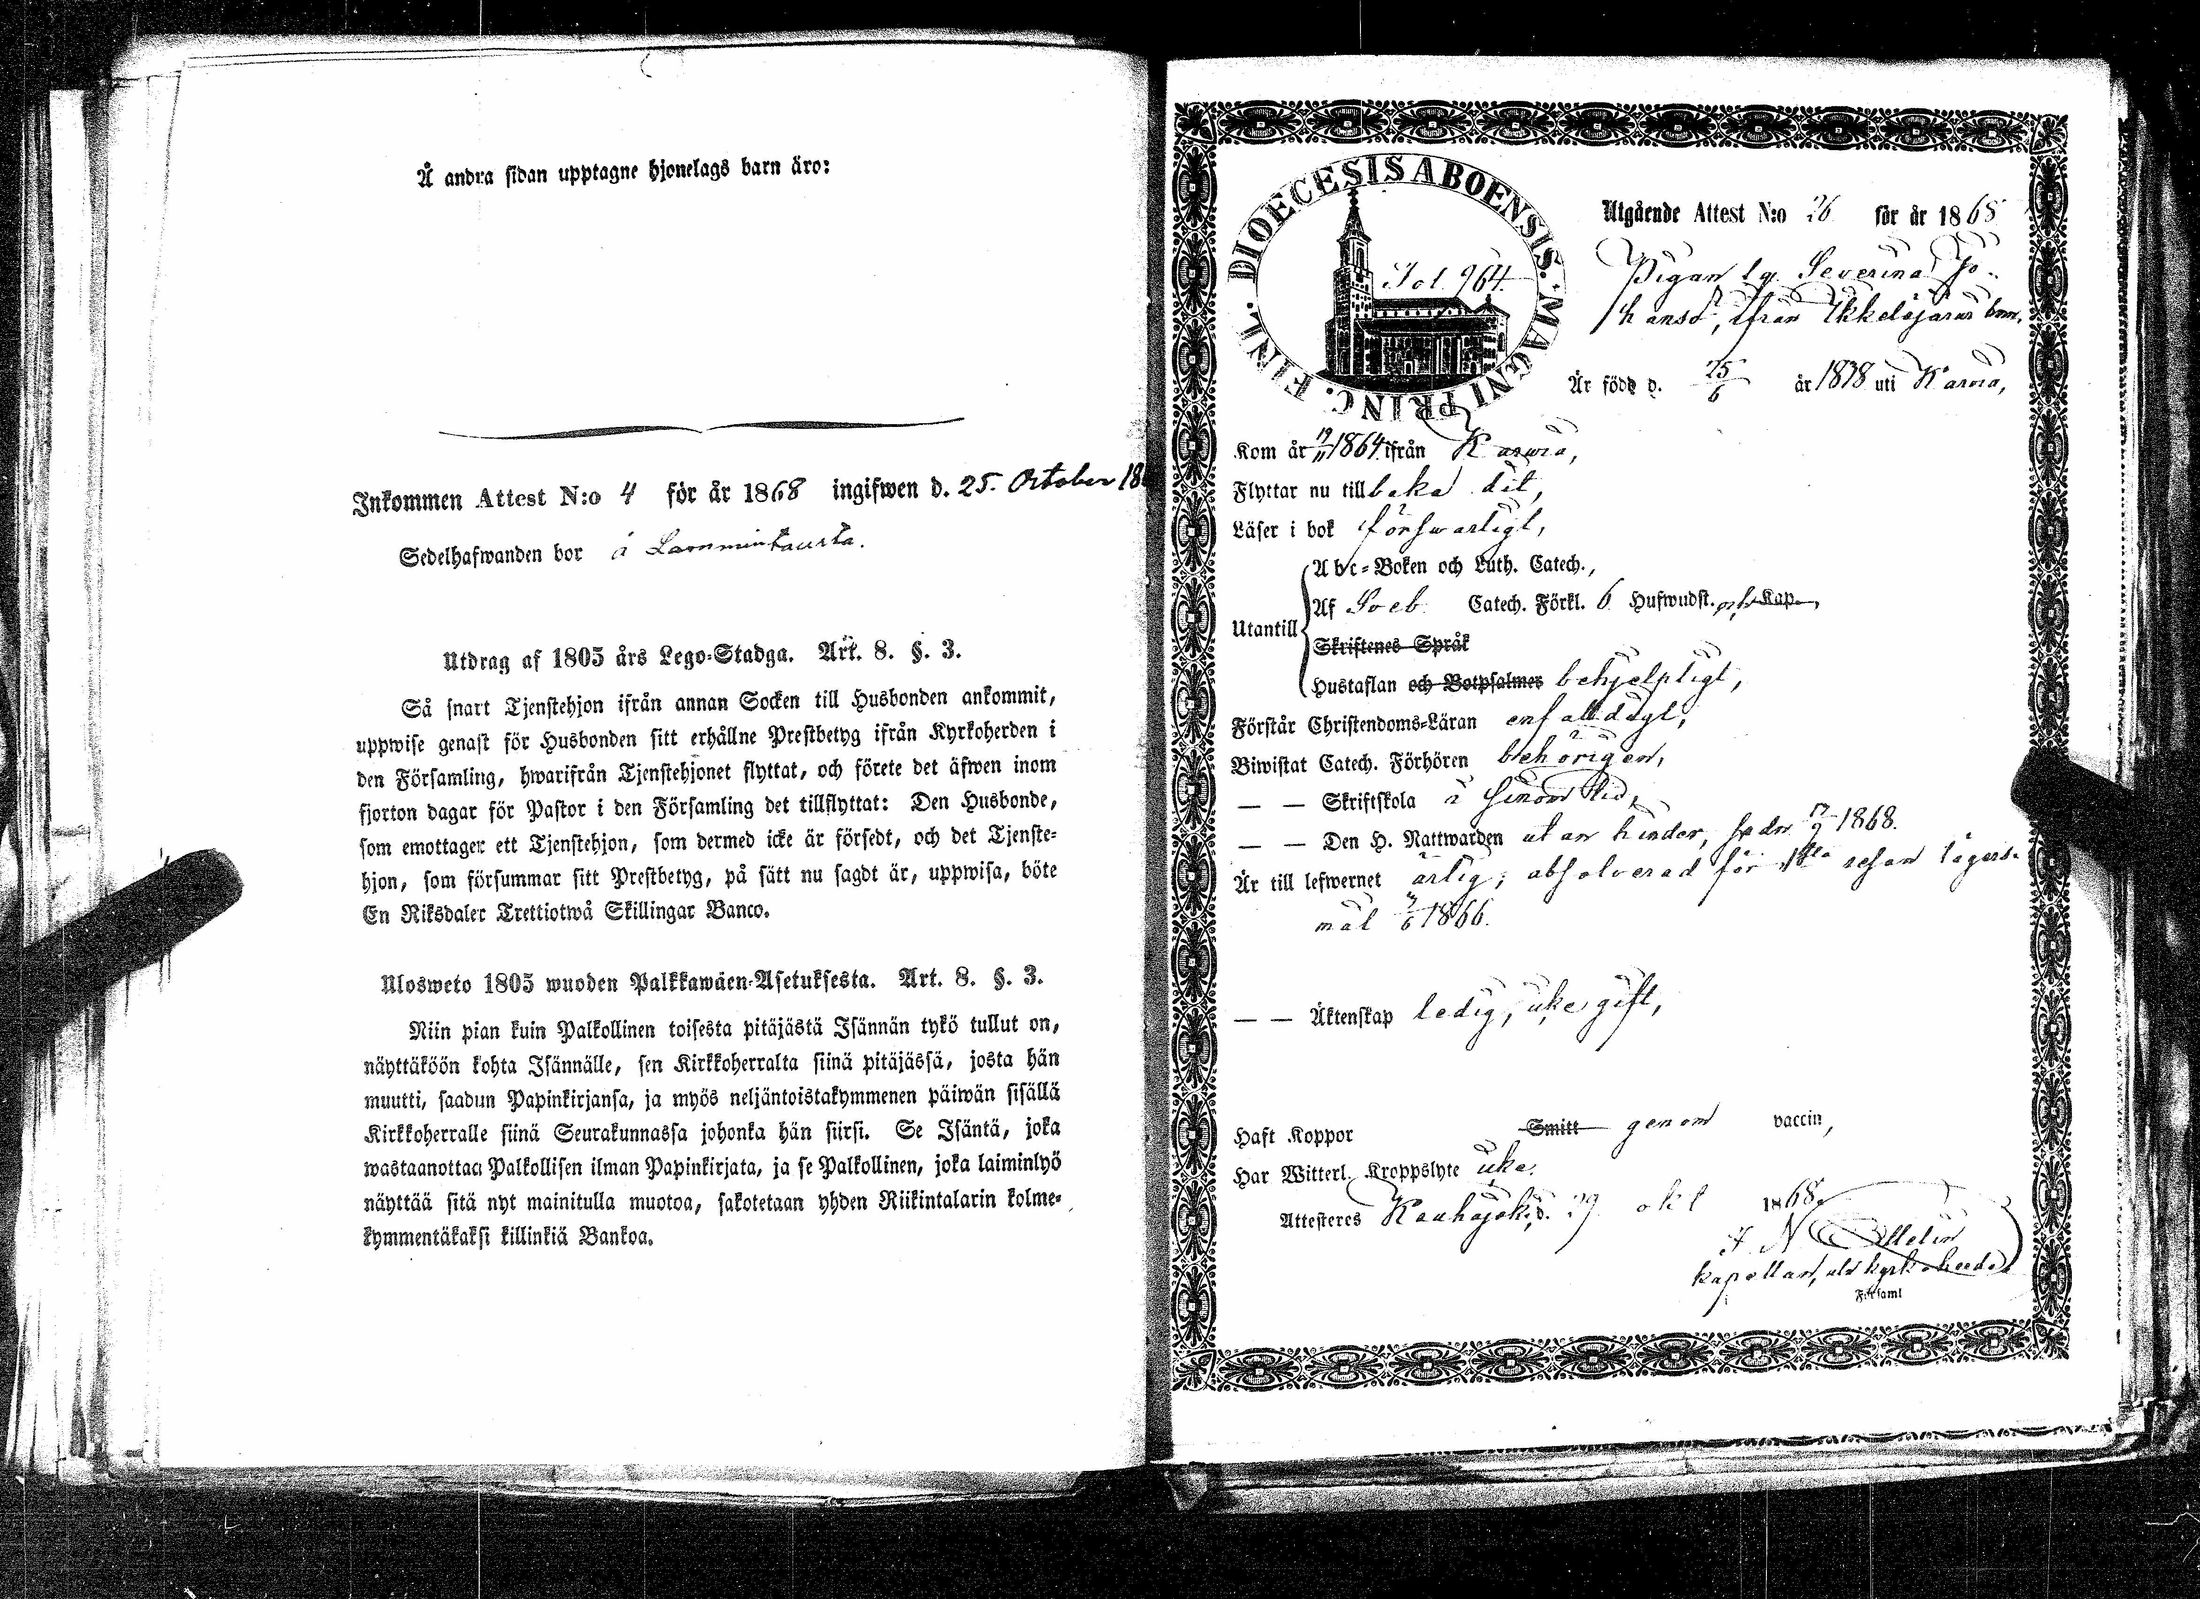 Å andra sidan upptagne hjonelags barn äro:
Inkommen Attest N:o 4 för år 1868 ingifwen d. 25. October 18
Sedelhafwanden bor å Lammintausta.
Utdrag af 1805 års Lego-Stadga. Art. 8. §. 3.
Så snart Tjenstehjon ifrån annan Socken till Husbonden ankommit,
uppwise genast för Husbonden sitt erhållne Prestbetyg ifrån Kyrkoherden i
den Församling, hwarifrån Tjenstehjonet flyttat, och förete det äfwen inom
fjorton dagar för Pastor i den Församling det tillflyttat: Den Husbonde,
som emottager ett Tjenstehjon, som dermed icke är försedt, och det Tjenste-
hjon, som försummar sitt Prestbetyg, på sätt nu sagdt är, uppwisa, böte
En Riksdaler Trettiotwå Skillingar Banco.
Ulosweto 1805 wuoden Palkkawäen-Asetuksesta. Art. 8. §. 3.
Niin pian kuin Palkollinen toisesta pitäjästä Isännän tykö tullut on,
näyttäköön kohta Isännälle, sen Kirkkoherralta siinä pitäjässä, josta hän
muutti, saadun Papinkirjansa, ja myös neljäntoistakymmenen päiwän sisällä
Kirkkoherralle siinä Seurakunnassa johonka hän siirsi. Se Isäntä, joka
wastaanottaa Palkollisen ilman Papinkirjata, ja se Palkollinen, joka laiminlyö
näyttää sitä nyt mainitulla muotoa, sakotetaan yhden Riikintalarin kolme-
kymmentäkaksi killinkiä Bankoa.
FINL. DIOECESIS ABOENSIS. MAGNI PRINC.
Fol. 964.
Utgående Attest N:o 26 för år 1868
Pigan lg. Severina Jo-
hansd, ifrån Ikkeläjärvi
Är född d. 25/6 år 1838 uti Karvia,
Kom år 19/11 1864 ifrån Karvia,
Flyttar nu tillbaka dit,
Läser i bok försvarligt,
Abc-Boken och Luth. Catech.,
Af Sveb. Catech. Förkl. 6 Hufwudst. och Kap.,
Utantill
Skriftenes Språk
Hustaflan och Botpsalmer behjelpligt,
Förstår Christendoms-Läran enfalldigt,
Biwistat Catech. Förhören behörigen,
— — Skriftskola i sinom tid,
— — Den H. Nattwarden utan hinder, sedn. 1868.
Är till lefwernet ärlig; absolverad för 1sta resan lägers-
mål 1866.
— — Äktenskap ledig, icke gift,
Haft Koppor Smitt genom vaccin,
Har Witterl. Kroppslyte icke.
Attesteres Kauhajoki, d. 29 okt 1868.
J N
kapellan,
Församl